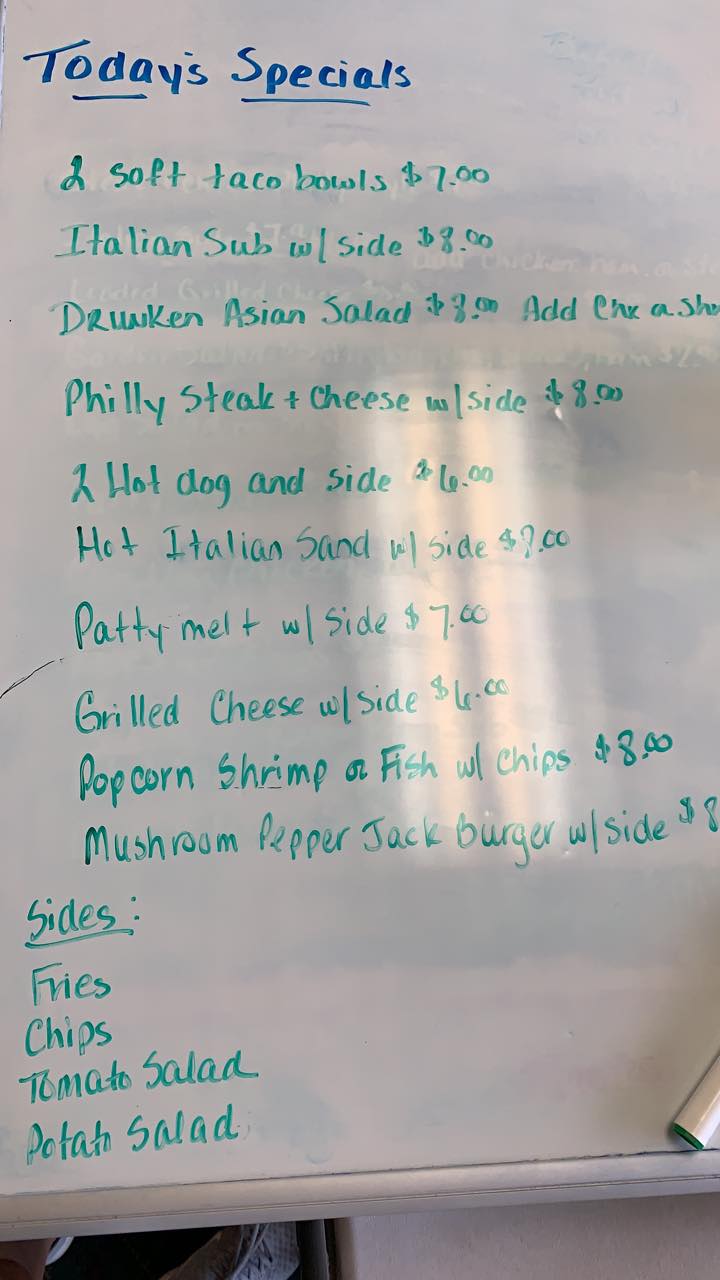 Today's Specials
2 soft taco bowls $7.00
Italian Sub w/ side $8.00
Drunken Asian Salad $8.00 Add Chx a Sh
Philly Steak + Cheese w/side $8.00
2 Hot dog and side $6.00
Hot Italian Sand w/ side
Patty melt w/ side $7.00
Grilled Cheese w/side $6.00
Popcorn Shrimp or Fish w/ chips $8.00
Mushroom Pepper Jack burger w/side $8
Sides:
Fries
Chips
Tomato Salad
Potato Salad